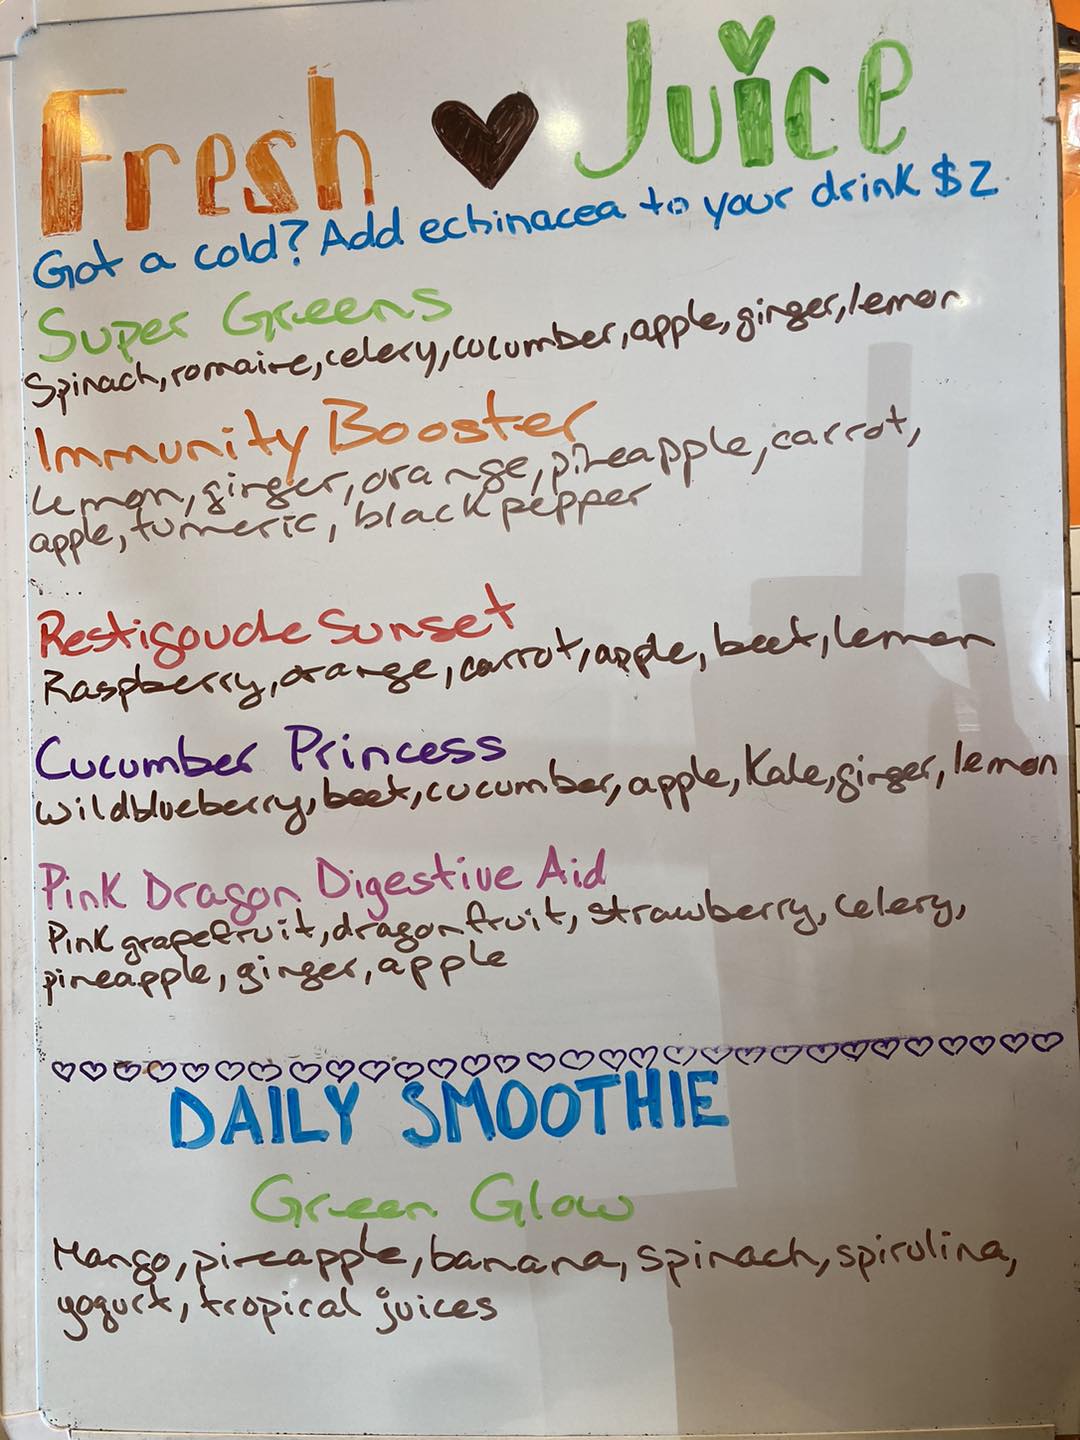 Fresh Juice
Got a cold? Add echinacea to your drink $2
Super Greens
Spinach, romaine, celery, cucumber, apple, ginger, lemon
Immunity Booster
Lemon, ginger, orange, pineapple, carrot,
apple, tumeric, black pepper
Restigouche Sunset
Raspberry, orange, carrot, apple, beet, lemon
Cucumber Princess
Wildblueberry, beet, cucumber, apple, Kale, ginger, lemon
Pink Dragon Digestive Aid
Pink grapefruit, dragonfruit, strawberry, celery,
pineapple, ginger, apple
DAILY SMOOTHIE
Green Glow
Mango, pineapple, banana, spinach, spirulina,
yogurt, tropical juices